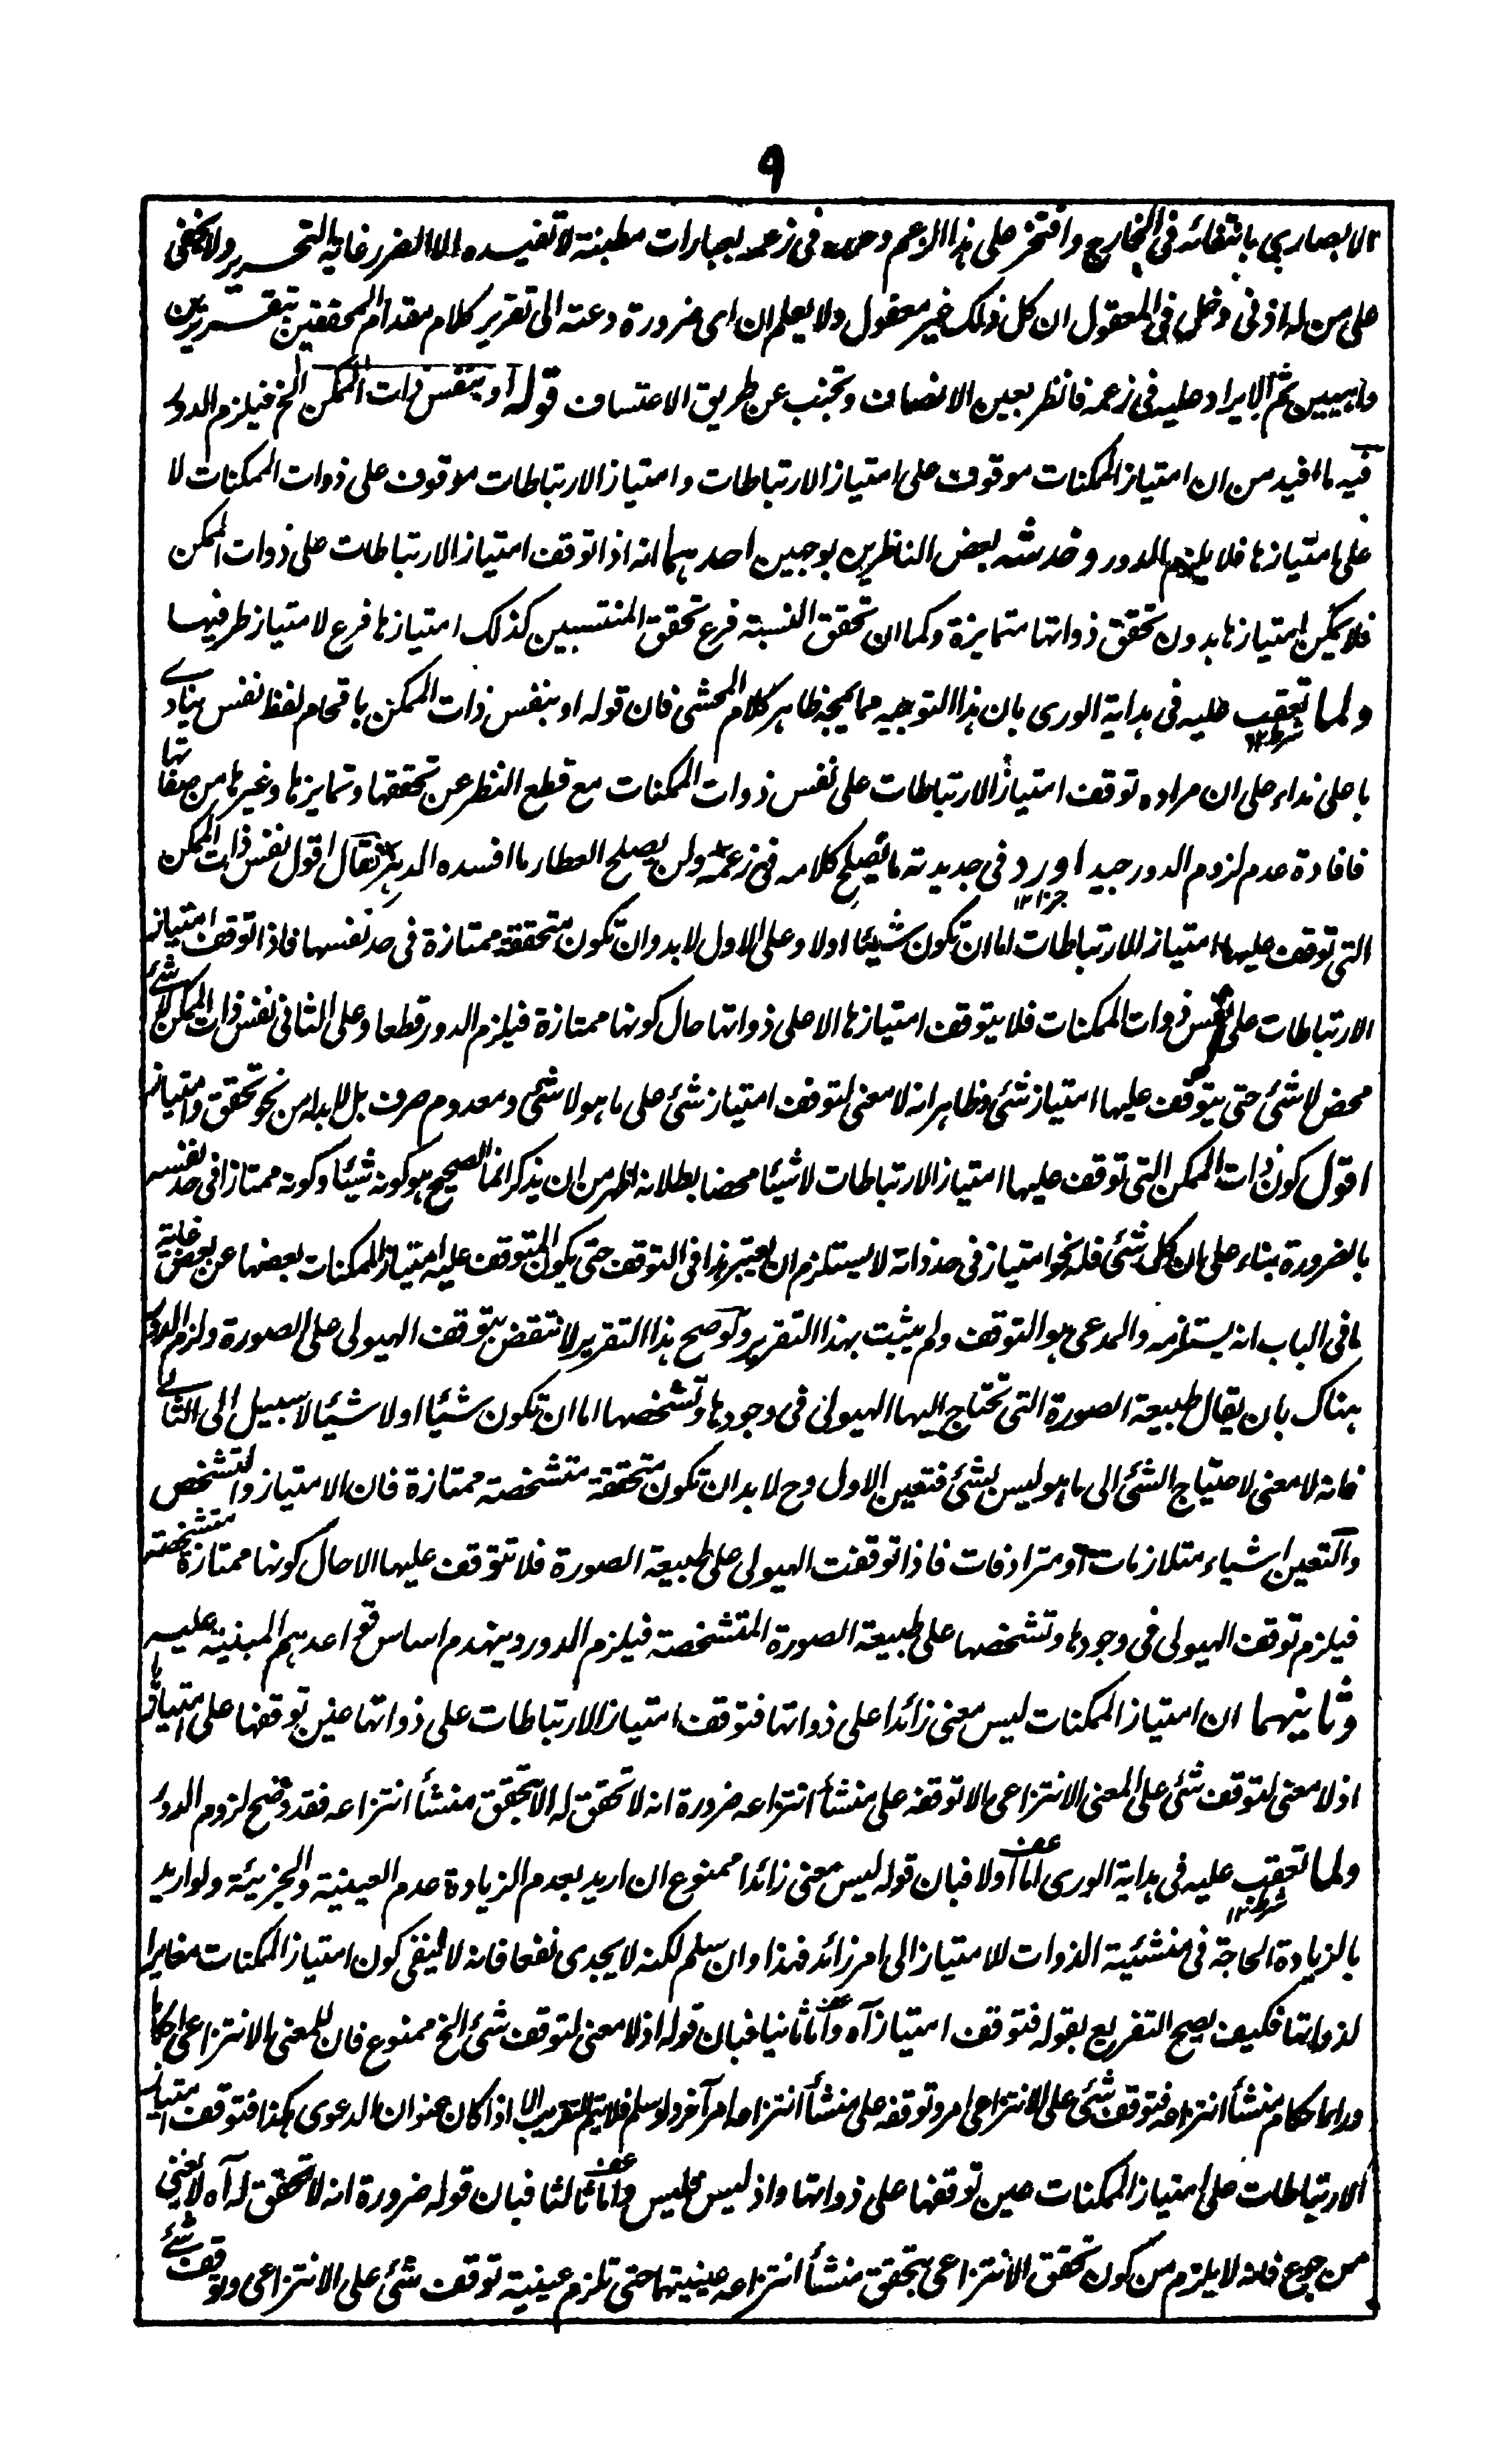 ٩
الابصاري بانتفائه في الخارج وافتخر على هذا الزعم وحده في زعمه بعبارات مطنبة لا تفيده الا الضرر غاية التحرير ولا يخفى
على من له ادنى دخل في المعقول ان كل ذلك غير معقول ولا يعلم ان اى ضرورة دعته الى تقرير كلام مقدام المحققين بتقريرين
واهيين ثم الايراد عليه في زعمه فانظر بعين الانصاف وتجنب عن طريق الاعتساف قوله او بنفس ذات الممكن الخ فيلزم الدور
فيه ما افيد من ان امتياز الممكنات موقوف على امتياز الارتباطات وامتياز الارتباطات موقوف على ذوات الممكنات لا
على امتيازها فلا يلزم الدور وخدشه بعض الناظرين بوجهين احدهما انه اذا توقف امتياز الارتباطات على ذوات الممكن
فلا يمكن امتيازها بدون تحقق ذواتها متمايزة وكما ان تحقق النسبة فرع تحقق المنتسبين كذلك امتيازها فرع لامتياز طرفيها
ولما تعقب عليه في هداية الورى بان هذا التوجيه مما يمجه ظاهر كلام المحشى فان قوله او بنفس ذات الممكن باقحام لفظ نفس ينادى
شرط ١٢
باعلى نداء على ان مراده توقف امتياز الارتباطات على نفس ذوات الممكنات مع قطع النظر عن تحققها وتمايزها وغيرها من صفاتها
فافادة عدم لزوم الدور جيد اورد في جديدته ما يصلح كلامه في زعمه ولن يصلح العطار ما افسده الدهر فقال اقول نفس ذات الممكن
جزا ١٢
التى توقف عليها امتياز للارتباطات اما ان تكون شيئا اولا وعلى الاول لا بد وان تكون متحققة ممتازة في حد نفسها فاذا توقف امتياز
الارتباطات على نفس ذوات الممكنات فلا يتوقف امتيازها الا على ذواتها حال كونها ممتازة فيلزم الدور قطعا وعلى الثانى نفس ذات الممكن لا شئ
محض لا شئ حتى يتوقف عليها امتياز شئ وظاهر انه لا معنى لتوقف امتياز شئ على ما هو لا شئ ومعدوم صرف بل لا بد له من نحو تحقق وامتياز
اقول كون ذات الممكن التى توقف عليها امتياز الارتباطات لا شيئا محضا بطلانه اظهر من ان يذكر انما الصحيح هو كونه شيئا وكونه ممتازا في حد نفسه
بالضرورة بناء على ان كل شئ فله نحو امتياز في حد ذاته لا يستلزم ان يعتبر هذا في التوقف حتى يكون المتوقف عليه امتياز الممكنات بعضها عن بعض غاية
ما في الباب انه يستلزمه والمدعى هو التوقف ولم يثبت بهذا التقرير ولو صح هذا التقرير لانتقض بتوقف الهيولى على الصورة ولزم الدور
هناك بان يقال طبيعة الصورة التى تحتاج اليها الهيولى في وجودها وتشخصها اما ان تكون شيئا اولا شيئا لا سبيل الى الثانى
فانه لا معنى لاحتياج الشئ الى ما هو ليس بشئ فتعين الاول وح لا بد ان تكون متحققة متشخصة ممتازة فان الامتياز والتشخص
والتعين اشياء متلازمات او مترادفات فاذا توقفت الهيولى على طبيعة الصورة فلا تتوقف عليها الا حال كونها ممتازة متشخصة
فيلزم توقف الهيولى في وجودها وتشخصها على طبيعة الصورة المتشخصة فيلزم الدور وينهدم اساس قواعدهم المبنية عليه
وثانيهما ان امتياز الممكنات ليس معنى زائدا على ذواتها فتوقف امتياز الارتباطات على ذواتها عين توقفها على امتيازها
اذ لا معنى لتوقف شئ على المعنى الانتزاعى الا توقفه على منشأ انتزاعه ضرورة انه لا تحقق له الا بتحقق منشأ انتزاعه فقد وضح لزوم الدور
ولما تعقب عليه في هداية الورى اما اولا فبان قوله ليس معنى زائدا ممنوع ان اريد بعدم الزيادة عدم العينية والجزئية ولو اريد
شرط ١٢
بالزيادة الحاجة في منشئية الذوات للامتياز الى امر زائد فهذا وان سلم لكنه لا يجدى نفعا فانه لا ينفى كون امتياز الممكنات مغايرا
لذواتها فكيف يصح التفريع بقوله فتوقف امتياز آه واما ثانيا فبان قوله اذ لا معنى لتوقف شئ الخ ممنوع فان للمعنى الانتزاعى احكاما
وراء احكام منشأ انتزاعه فتوقف شئ على الانتزاعى امر وتوقفه على منشأ انتزاعه امر آخر ولو سلم فلا يتم التقريب الا اذا كان عنوان الدعوى هكذا فتوقف امتياز
الارتباطات على امتياز الممكنات عين توقفها على ذواتها واذ ليس فليس واما ثالثا فبان قوله ضرورة انه لا تحقق له آه لا يغنى
من جوع فانه لا يلزم من كون تحقق الانتزاعى بتحقق منشأ انتزاعه عينيتهما حتى تلزم عينية توقف شئ على الانتزاعى وتوقف شئ